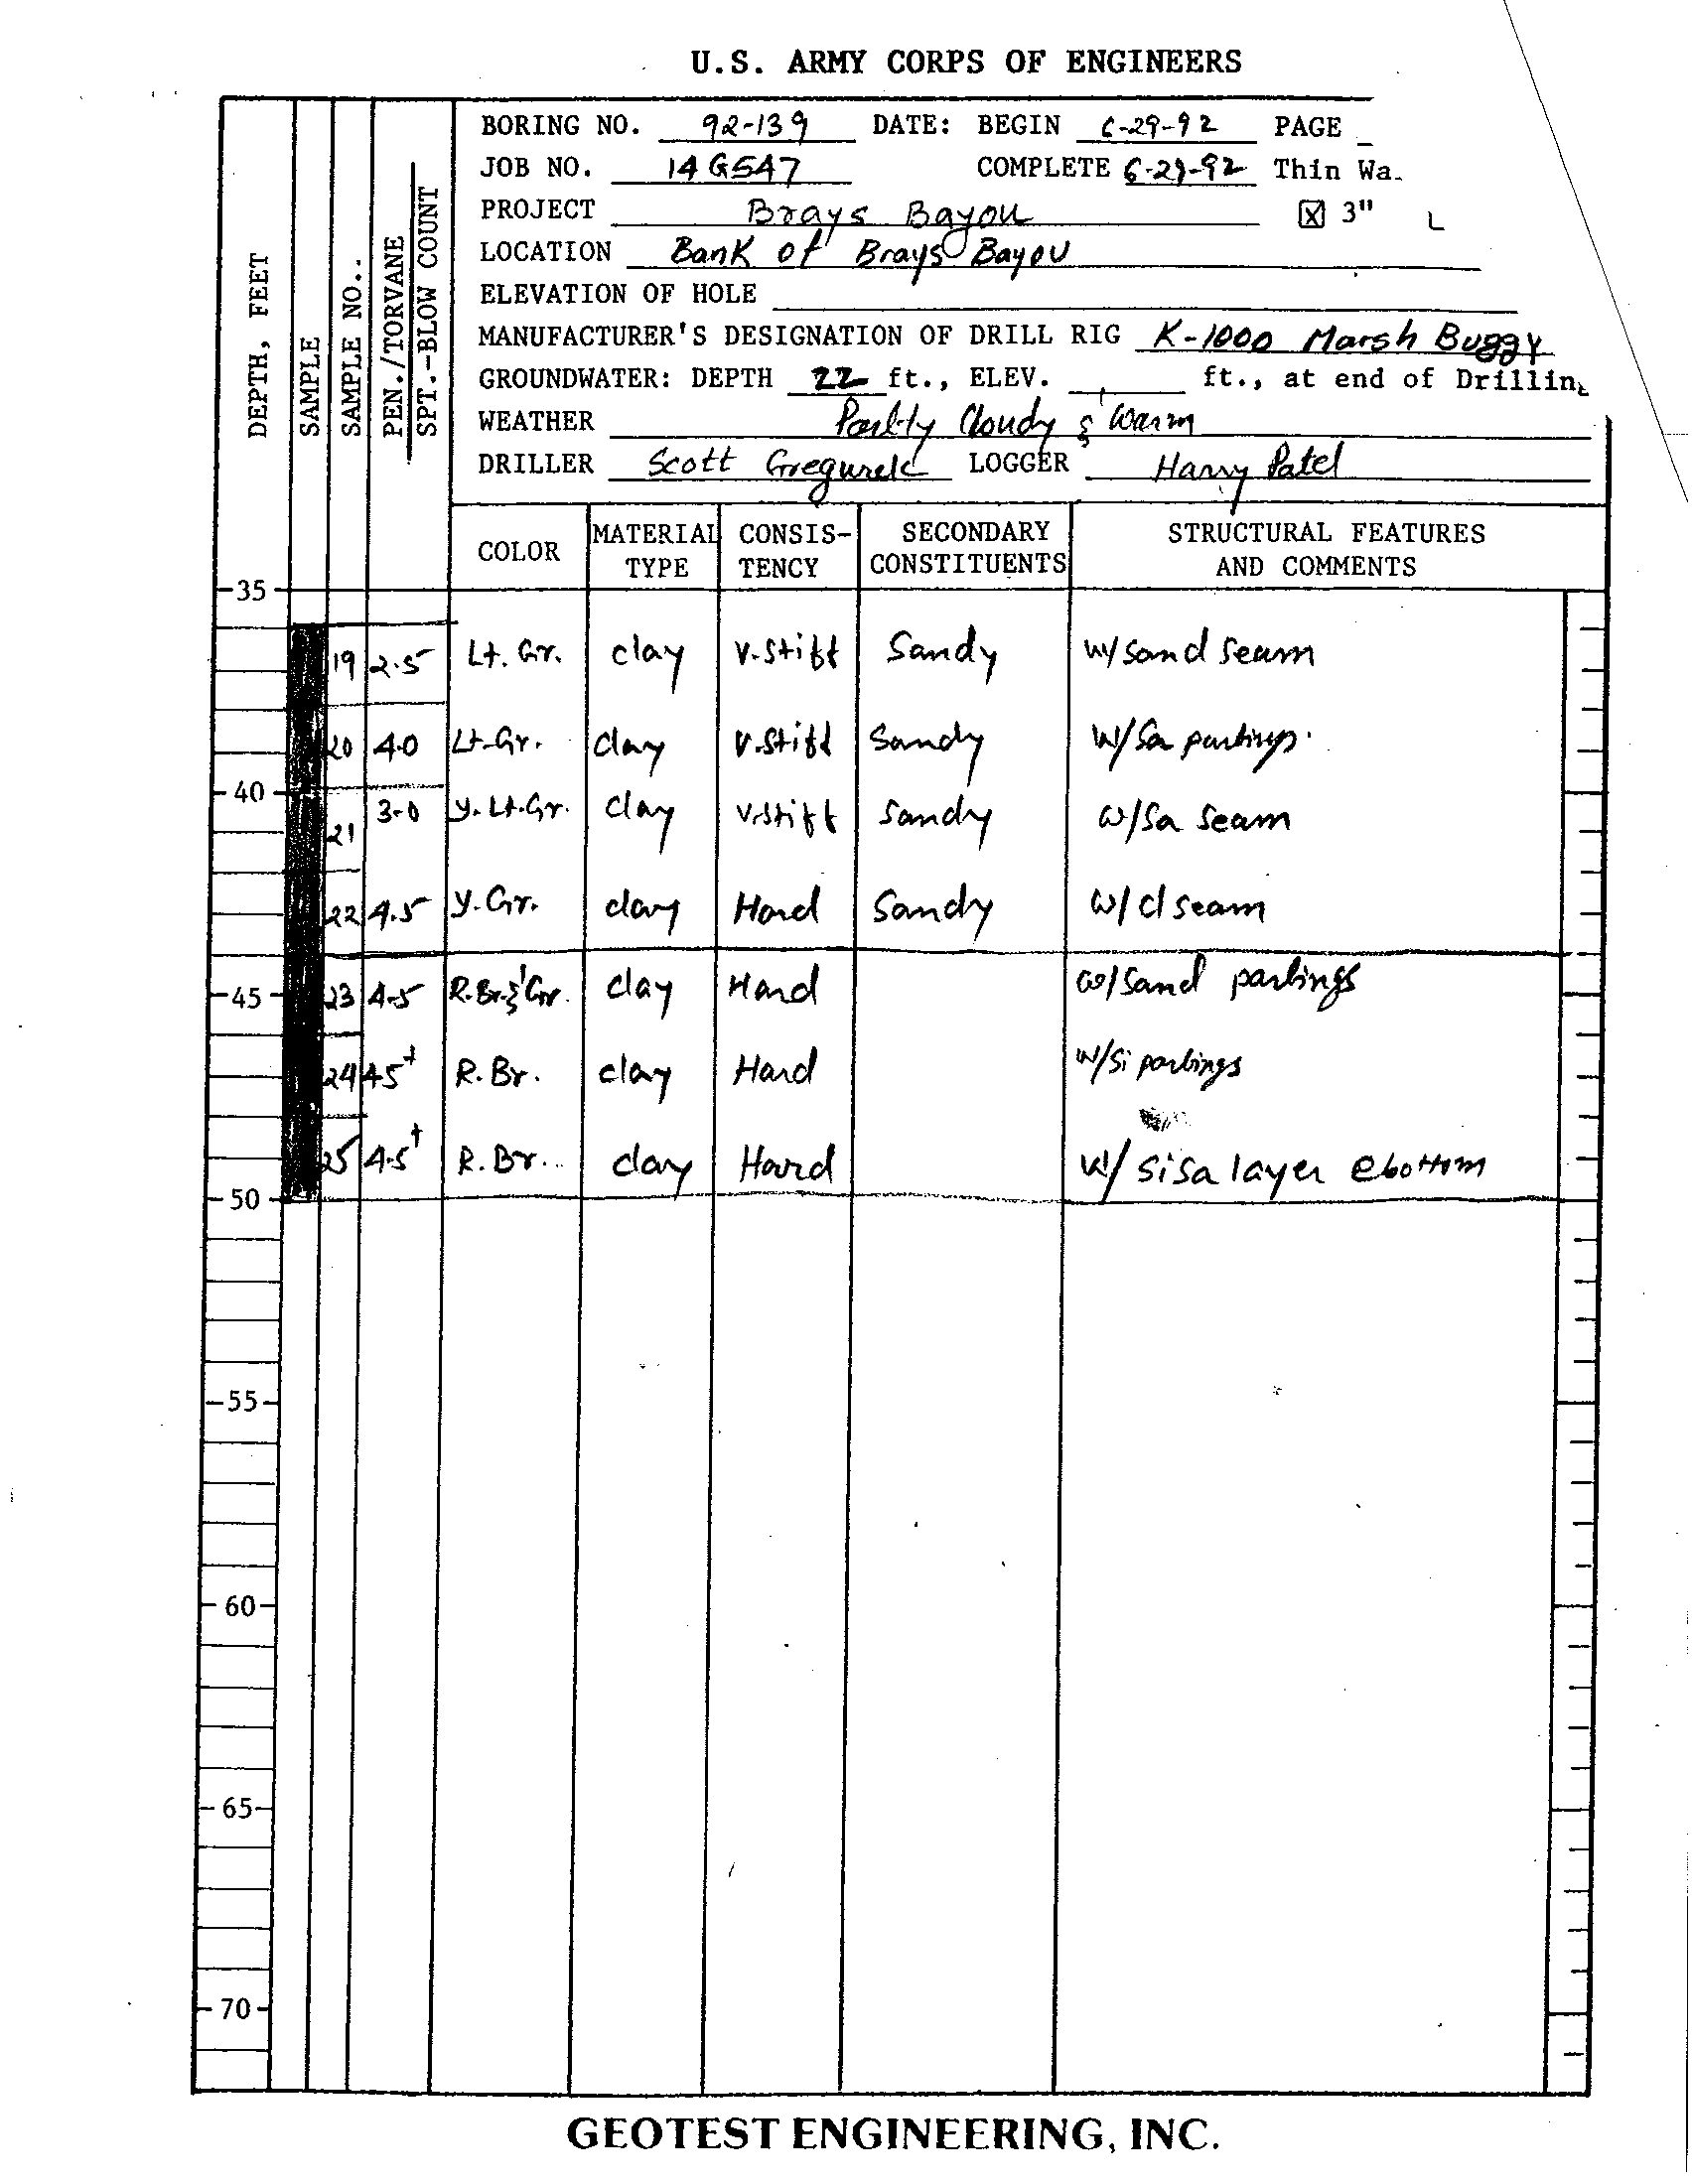 U.S. ARMY CORPS OF ENGINEERS
BORING NO. 92-139 DATE: BEGIN 6-29-92 PAGE
JOB NO. 14G547 COMPLETE 6-29-92 Thin Wa
PROJECT Brays Bayou ☒ 3" L
LOCATION Bank of Brays Bayou
ELEVATION OF HOLE
MANUFACTURER'S DESIGNATION OF DRILL RIG K-1000 Marsh Buggy
GROUNDWATER: DEPTH 22 ft., ELEV. ft., at end of Drillin
WEATHER Partly Cloudy & Warm
DRILLER Scott Gregurek LOGGER Harry Patel
DEPTH, FEET
SAMPLE
SAMPLE NO..
PEN./TORVANE
SPT.-BLOW COUNT
COLOR MATERIAL TYPE CONSIS-TENCY SECONDARY CONSTITUENTS STRUCTURAL FEATURES AND COMMENTS
35
19 2.5 Lt. Gr. clay V.Stiff Sandy w/ sand seam
20 4.0 Lt.Gr. clay V.Stiff Sandy w/ Sa partings.
40
21 3.0 y. Lt.Gr. clay V.Stiff Sandy w/ Sa seam
22 4.5 y. Gr. clay Hard Sandy w/ cl seam
45 23 4.5 R.Br. & Gr. clay Hard w/ sand partings
24 4.5+ R. Br. clay Hard w/ Si partings
25 4.5+ R. Br. clay Hard w/ sisa layer @ bottom
50
55
60
65
70
GEOTEST ENGINEERING, INC.